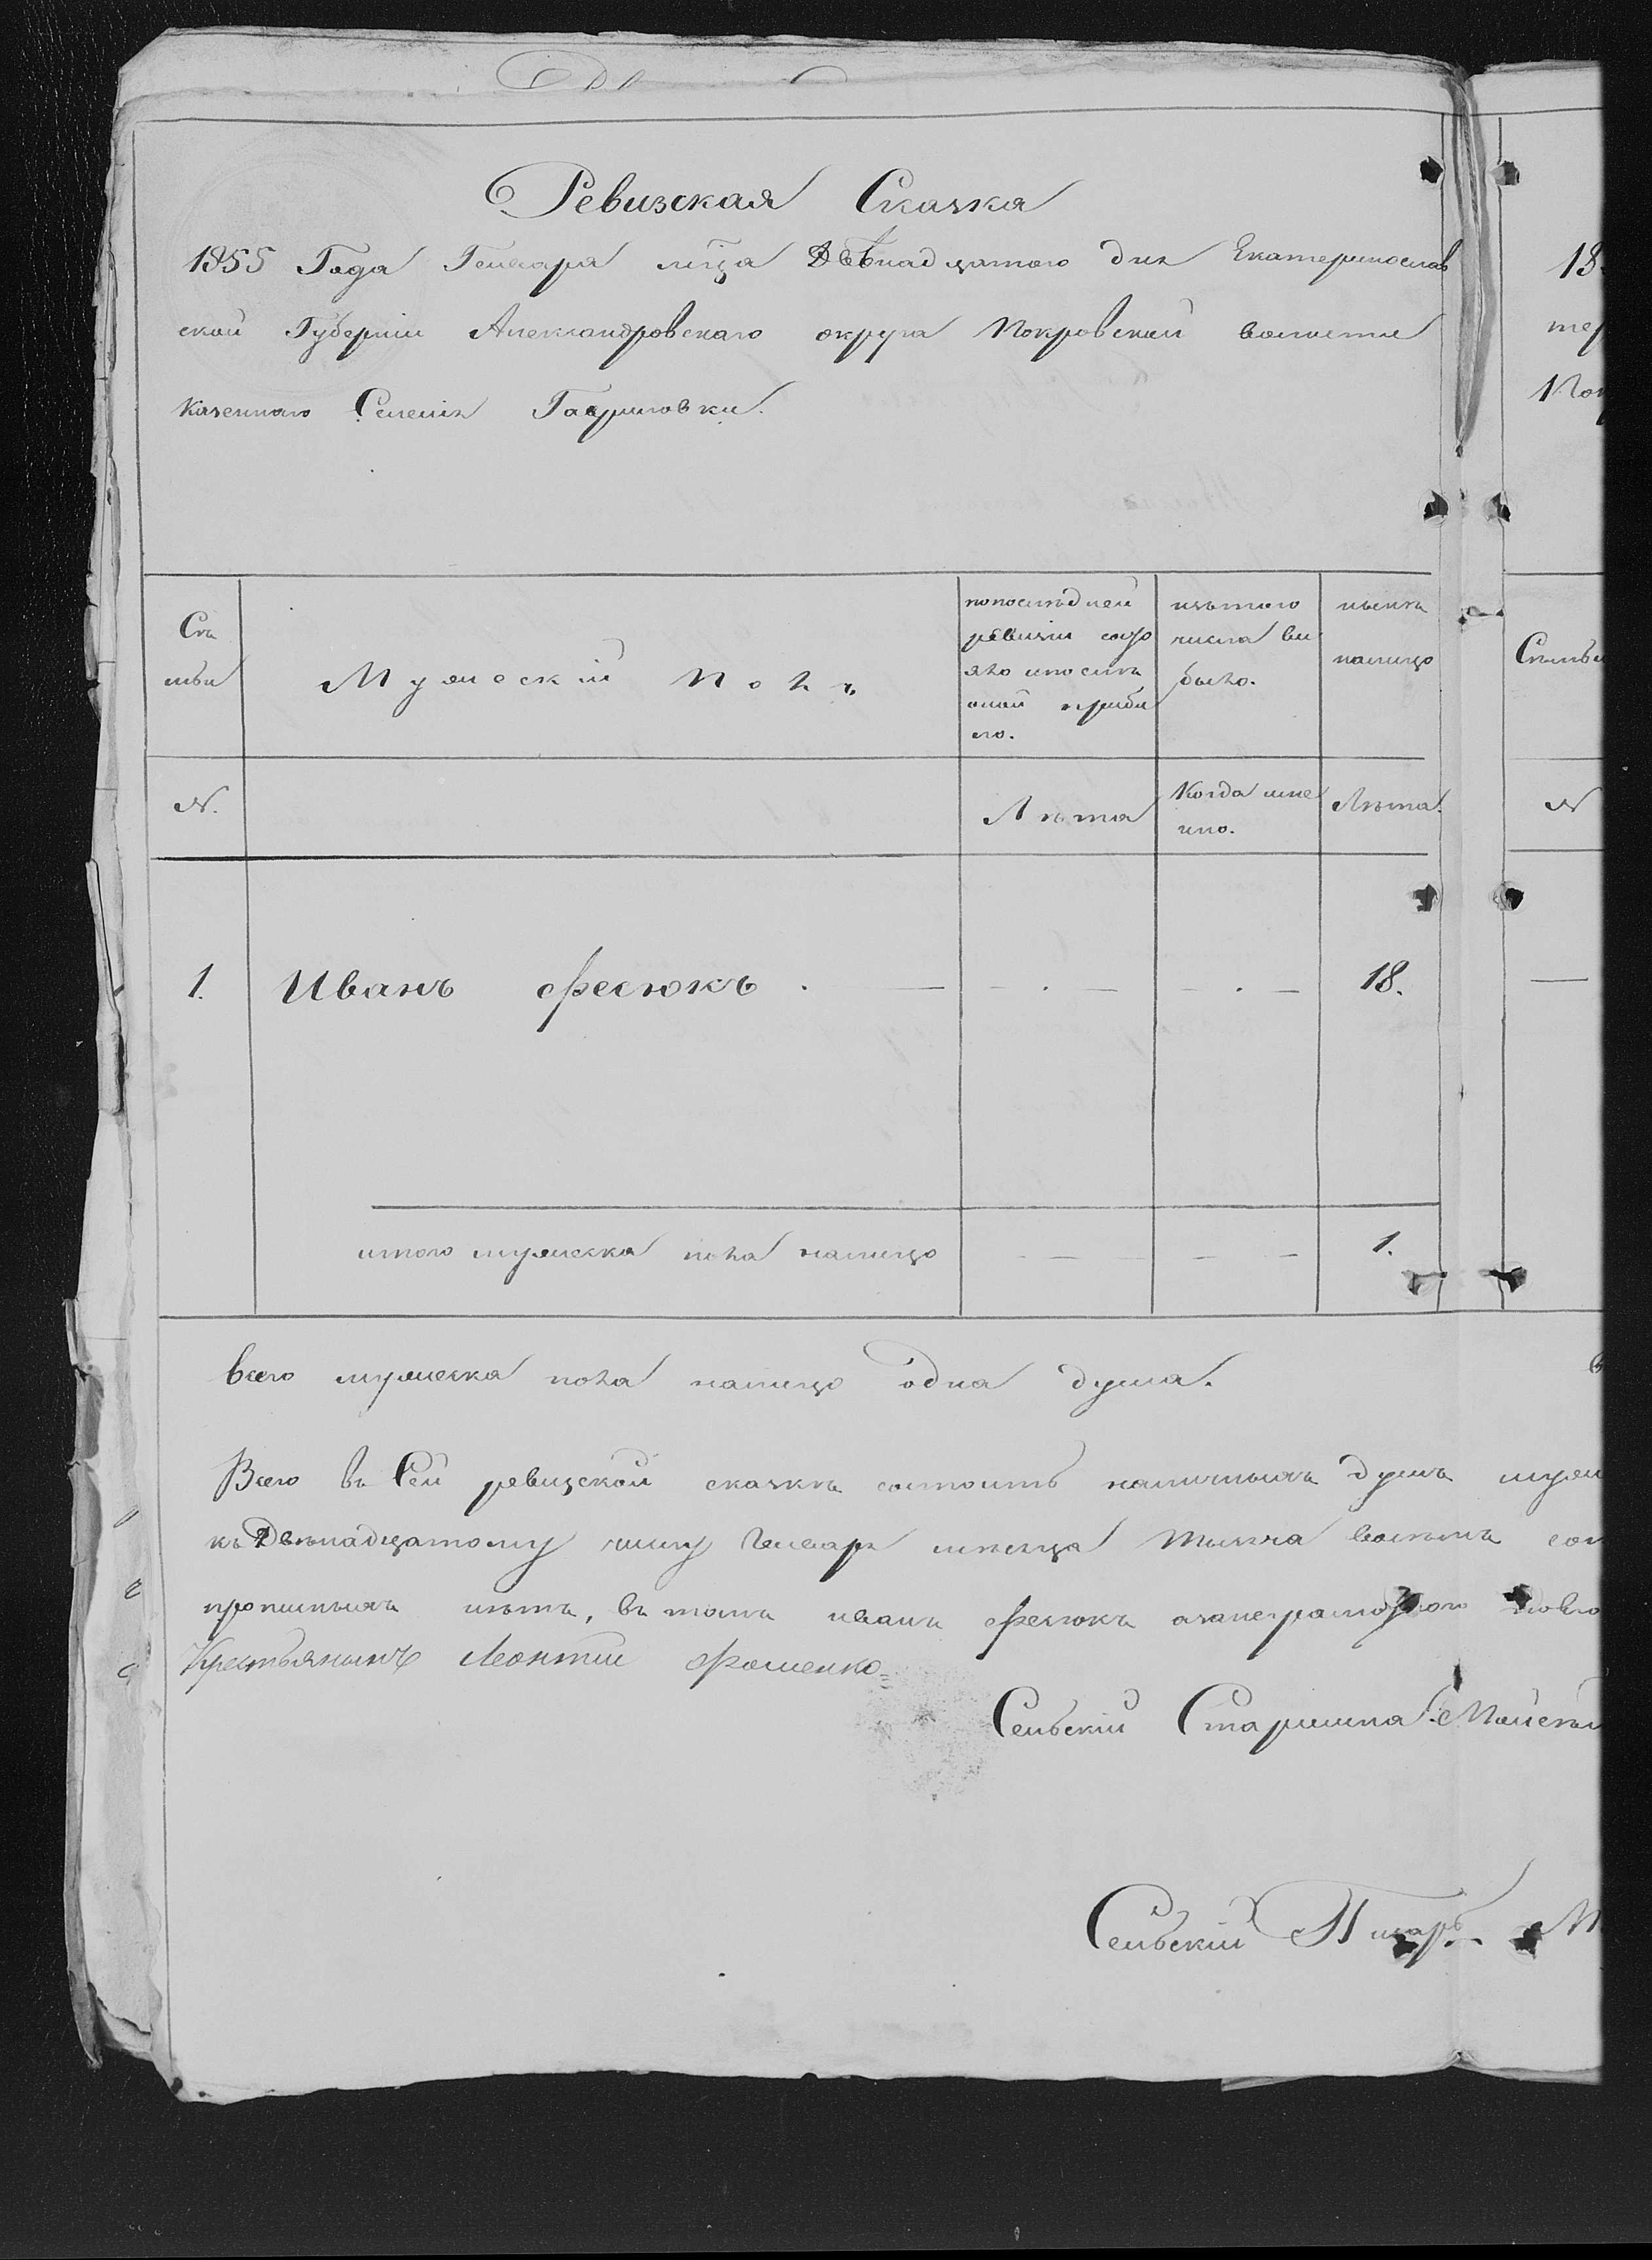 Ревизская Сказка
1855 Года Генваря мѣца Двѣнадцатого дня Екатеринослав
ской Губерніи Александровскаго округа Покровской волости
Казенного Селенія Гавриловки.
Се
мьи
Мужескій Полъ
попослѣдней
ревизіи состо
яло ипослѣ
оной прибы
ло.
изътого
числа вы
было.
нынѣ
налицо
Семьи
N.
Лѣта
Когда име
нно.
Лѣта.
N
1. Иванъ Фесюкъ . — — . — — . — 18. —
итого мужеска пола налицо — — 1.
всего мужеска пола налицо одна душа.
Всего въ Сей ревизской сказкѣ состоитъ наличныхъ душъ муж
къ Двѣнадцатому числу Генваря мѣсяца Тысяча восемъ сот
прописныхъ нѣтъ, въ томъ иванъ Фесюкъ азанеграмотного
Крестьянинъ Леонтий Фоменко
Сельскій Старшина
Сельскій Писарь М